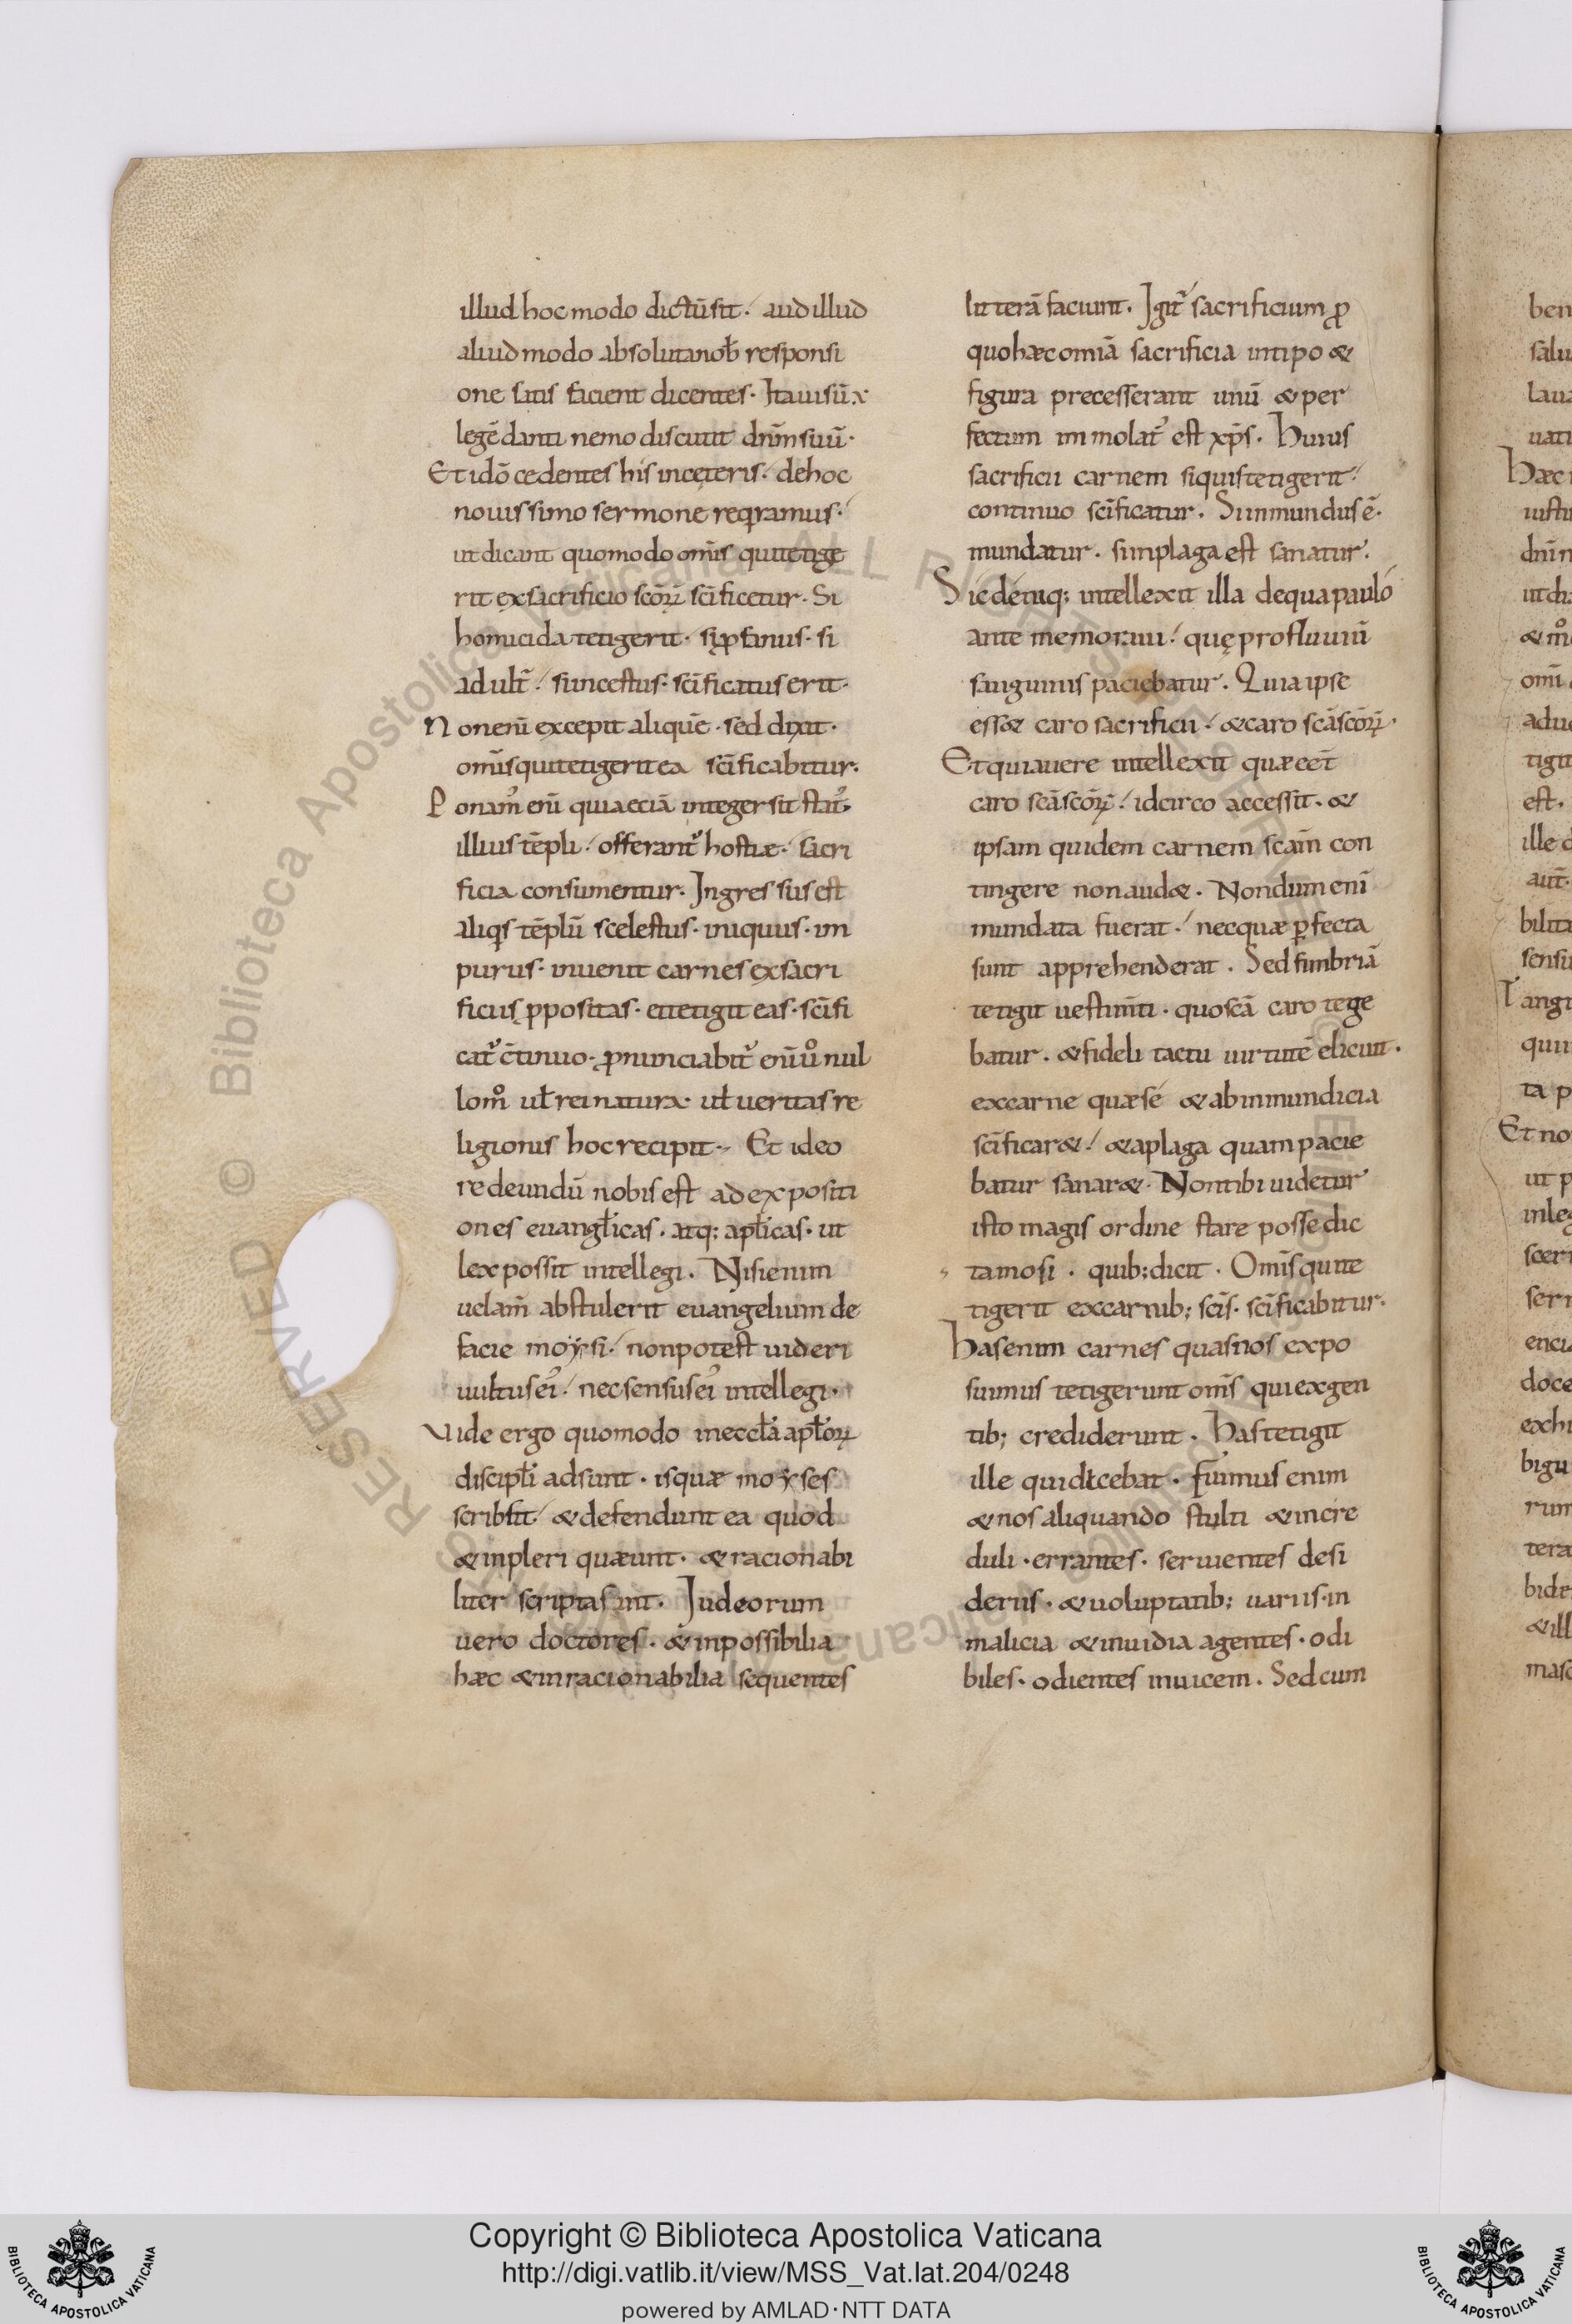 illud hoc modo dictū sit · aud illud
aliud modo absolutanob̄ responsi
one satis facient dicentes · Ita uisū ÷
legē danti nemo discutit dn̄m suū ·
Et idō cedentes his incęteris · de hoc
nouissimo sermone reqramus ·
ut dicant quomodo om̄s qui tetige
rit ex sacrificio sc̄oꝝ sc̄ificetur · Si
homicida tetigerit · si ꝓfanus · si
adult̄ · si incestus · sc̄ificatus erit ·
Non enī excepit aliquē · sed dixit ·
om̄s qui tetigerit ea sc̄ificabitur ·
Ponam᾽ enī quia eciā integer sit stat᾽
illius tēpli · offerant᾽ hostiæ · sacri
ficia consumentur · Ingressus est
aliqs tēplū scelestus · iniquus · im
purus · inuenit carnes ex sacri
ficiis ꝓpositas · et tetigit eas · sc̄ifi
cat᾽ c̄tinuo · ꝓnunciabit᾽ enī uͦ nul
lo mͦ ut̄ rei natura · ut̄ ueritas re
ligionis hoc recipit · Et ideo
redeundū nobis est ad expositi
ones euangl̄icas · atq; apl̄icas · ut
lex possit intellegi · Nisi enim
uelam̄ abstulerit euangelium de
facie moysi · non potest uideri
uultus ei᾽ · nec sensus ei᾽ intellegi ·
Vide ergo quomodo in eccl̄ia apl̄oꝝ
discipl̄i adsunt · is quæ moyses
scribsit · & defendunt ea quod
& inpleri quæunt · & racionabi
liter scripta sint · Iudeorum
uero doctores · & inpossibilia
hæc & inracionabilia sequentes
litterā faciunt · Igit᾽ sacrificium ꝓ
quo hæc omīa sacrificia in tipo &
figura precesserant unū & per
fectum immolat᾽ est xp̄s · Huius
sacrificii carnem si quis tetigerit ·
continuo sc̄ificatur · Si inmundus ē ·
mundatur · si in plaga est sanatur ·
Sic déniq; intellexit illa de qua pauló
ante memoraui · quę profluuiū
sanguinis paciebatur · Quia ipse
ess& caro sacrificii · & caro sc̄a sc̄oꝝ ·
Et quia uere intellexit quæ eet̄
caro sc̄a sc̄oꝝ · idcirco accessit · &
ipsam quidem carnem scām con
tingere non aud& · Nondum enī
mundata fuerat · nec quæ ꝑfecta
sunt apprehenderat · Sed fimbriā
tetigit uestim̄ti · quo scā caro tege
batur · & fideli tactu uirtutē elicuit ·
ex carne quæ sé & ab inmundicia
sc̄ificar& · & a plaga quam pacie
batur sanar& · Non tibi uidetur
isto magis ordine stare posse dic
ta mosi · quib; dicit · Om̄s qui te
tigerit ex carnib; sc̄is · sc̄ificabitur ·
Has enim carnes quas nos expo
suimus tetigerunt om̄s qui ex gen
tib; crediderunt · Has tetigit
ille qui dicebat · fuimus enim
& nos aliquando stulti & incre
duli · errantes · seruientes desi
deriis · & uoluptatib; uariis · in
malicia & inuidia agentes · odi
biles · odientes inuicem · Sed cum
Copyright © Biblioteca Apostolica Vaticana
http://digi.vatlib.it/view/MSS_Vat.lat.204/0248
powered by AMLAD·NTT DATA
BIBLIOTECA APOSTOLICA VATICANA
BIBLIOTECA APOSTOLICA VATICANA